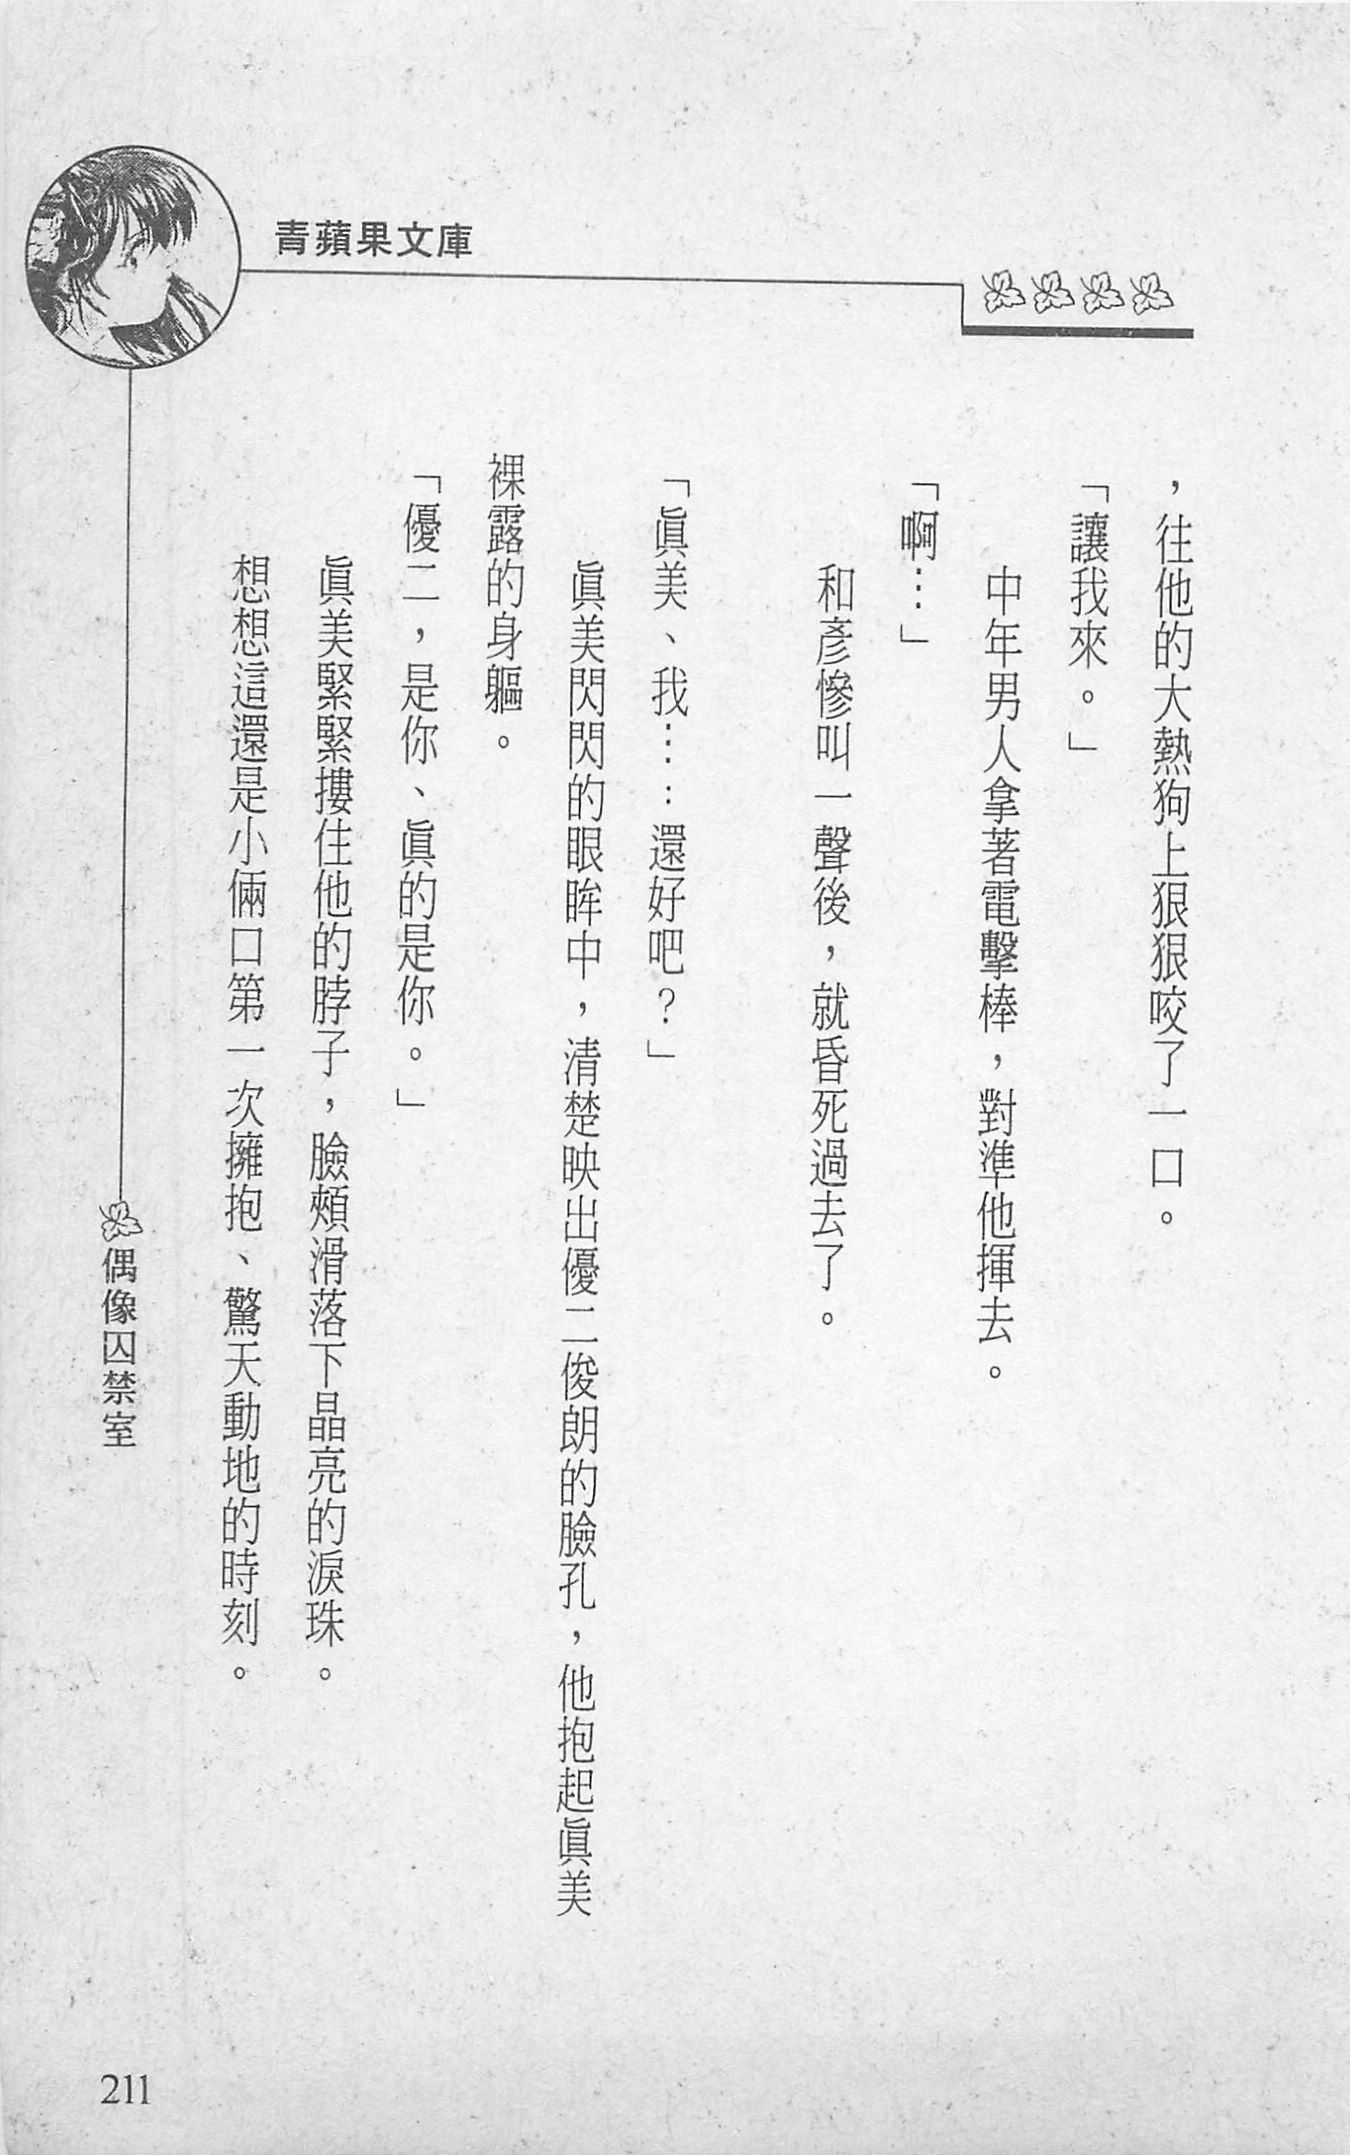 青蘋果文庫
，往他的大熱狗上狠狠咬了一口。
「讓我來。」
中年男人拿著電擊棒，對準他揮去。
「啊…」
和彥慘叫一聲後，就昏死過去了。
「眞美、我……還好吧？」
眞美閃閃的眼眸中，清楚映出優二俊朗的臉孔，他抱起眞美
裸露的身軀。
「優二，是你、眞的是你。」
眞美緊緊摟住他的脖子，臉頰滑落下晶亮的淚珠。
想想這還是小倆口第一次擁抱、驚天動地的時刻。
偶像囚禁室
211